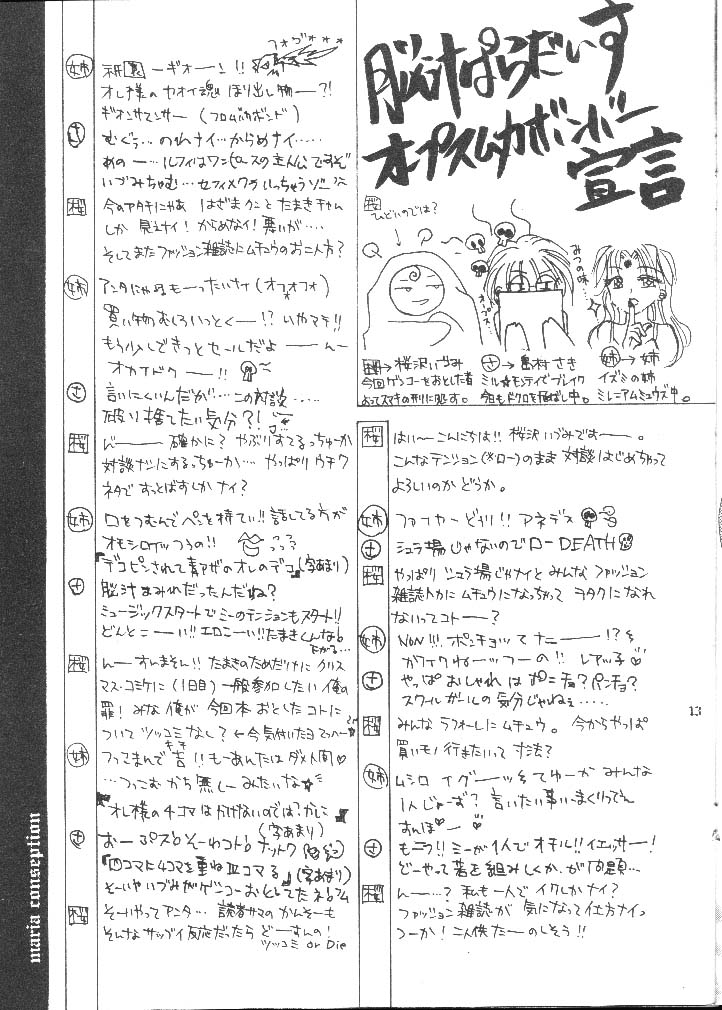 脳汁ぱらだいす
オプスムカボンバー
宣言
桜
ひどいのでは?
みつの味…
桜→桜沢いづみ
今回ゲンコーをおとした者
よってスマキの刑に処す。
さ→島村さき
ミル★モンティでブレイク
今日もドクロを飛ばし中。
姉→姉
イズミの姉
ミレニアムミュウズ中。
桜 はい〜こんにちは!! 桜沢いづみですー。
こんなテンション(※ロー)のまま対談はじめちゃって
よろしいのかどうか。
姉 ファイヤーどりり!! アネデス
さ シュラ場じゃないのでローDEATH
桜 やっぱりシュラ場じゃナイとみんなファッション
雑誌トカにムチュウになっちゃってヲタクになれ
ないってコトー?
姉 NON!!! ポンチョッてナニーー!?
がイクねーっつーの!! レアッ子♡
さ やっぱおしゃれはポニチョ?パンチョ?
スクールガールの気分じゃねぇ……
桜 みんなラフォーレにムチュウ。今からやっぱ
買いモノ行きたいって寸法?
姉 ムシロイグーーッそてゆーかみんな
1人じゃーず? 言いたい事いいまくりってん
すんぽー♡
さ もニョ!! ミーが1人でオチル!! イエッサー!
どーやって着を組みしくか、が問題…
桜 ん〜…? 私も一人でイクしかナイ?
ファッション雑誌が気になって仕方ナイっ
つーか! 二人供たーのしそう!!
姉 祇園ーギオーン!!
フォヴォォォ
オレ様のヤオイ魂ほり出し物ー?!
ギオンサマンサー(フロムバカボンド)
さ むぐぅ…のれナイ…からめナイ……
あのー…ルフィはワンピースの主人公ですぞ
いづみちゃむ…セフィメクラいっちゃうゾー
桜 今のアタチにゃあはざまクンとたまきチャム
しか見えナイ! からめナイ! 悪いが…
そしてまたファッション雑誌にムチュウのお二人方?
姉 アンタにゃぬもーったいナイ(オフォフォ)
買い物むしろいっとくー!? いやマテ!!
もう少しできっとセールだよーーんー
オカイドクーー!!
さ 言いにくいんだが…この対談……
破り捨てたい気分?!
桜 んーー確かに? やぶりすてるっちゅーか
対談ナシにするっちゅーか…やっぱりウチワ
ネタですっとばすしかナイ?
姉 口をつむんでペンを持てい!! 話してる方が
オモシロイッつうの!!
『デコピンされて青アザのオレのデコ』(字あまり)
さ 脳汁まみれだったんだね?
ミュージックスタートでミーのテンションもスタート!!
どんとこーい!! エロこーい!! たまきくんな
桜 んーすんませそん!! たまきのためだけにクリス
マス・コミケに(1日目)一般参加したい俺の
罪! みな俺が今回本おとしたコトに
ついてツッコミなし? ←今気付いたヨマッハー
姉 フってまんで吉!! もーあんたはダメ人間♡
…つっこむから悪しーみたいな☆
『オレ様の4コマはかけないのでは?かしこ』
(字あまり)
さ おーぷす! そーゆコト! ナットク
『四コマに4コマを重ねⅢコマる』(字あまり)
そーいやいづみがゲンコーおとしてたネ
桜 そーいやってアンタ…読者サマのかんそーも
そんなサップイ反応だったらどーすんの!
ツッコミ or Die
13
maria conseption